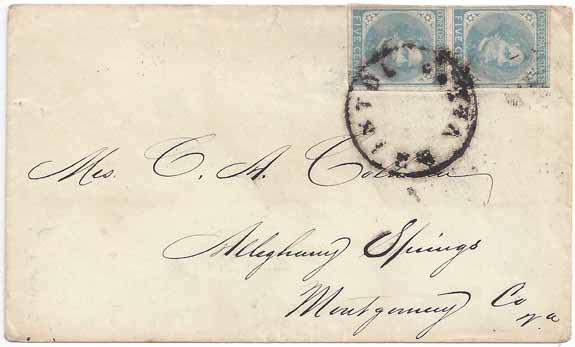 FIVE CENTS FIVE CENTS
BRISTOL
VA
Mrs. C. A.
Alleghany Springs
Montgomery Co
Va